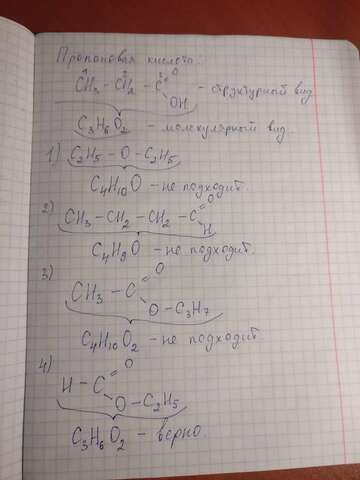 Пропановая кислота:
3 2 1
CH3 - CH2 - C =O OH - структурный вид
C3H6O2 - молекулярный вид.
1) C2H5 - O - C2H5
C4H10O - не подходит.
2) CH3 - CH2 - CH2 - C =O H
C4H9O - не подходит.
3) CH3 - C =O O - C3H7
C4H10O2 - не подходит
4) H - C =O O - C2H5
C3H6O2 - верно.